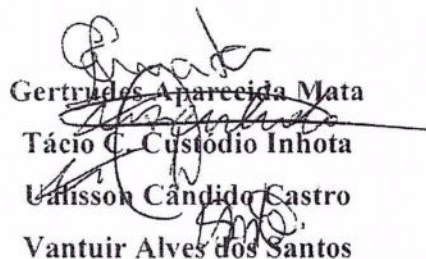 Gertrudes Aparecida Mata
Tácio C. Custódio Inhota
Ualisson Cândido Castro
Vantuir Alves dos Santos